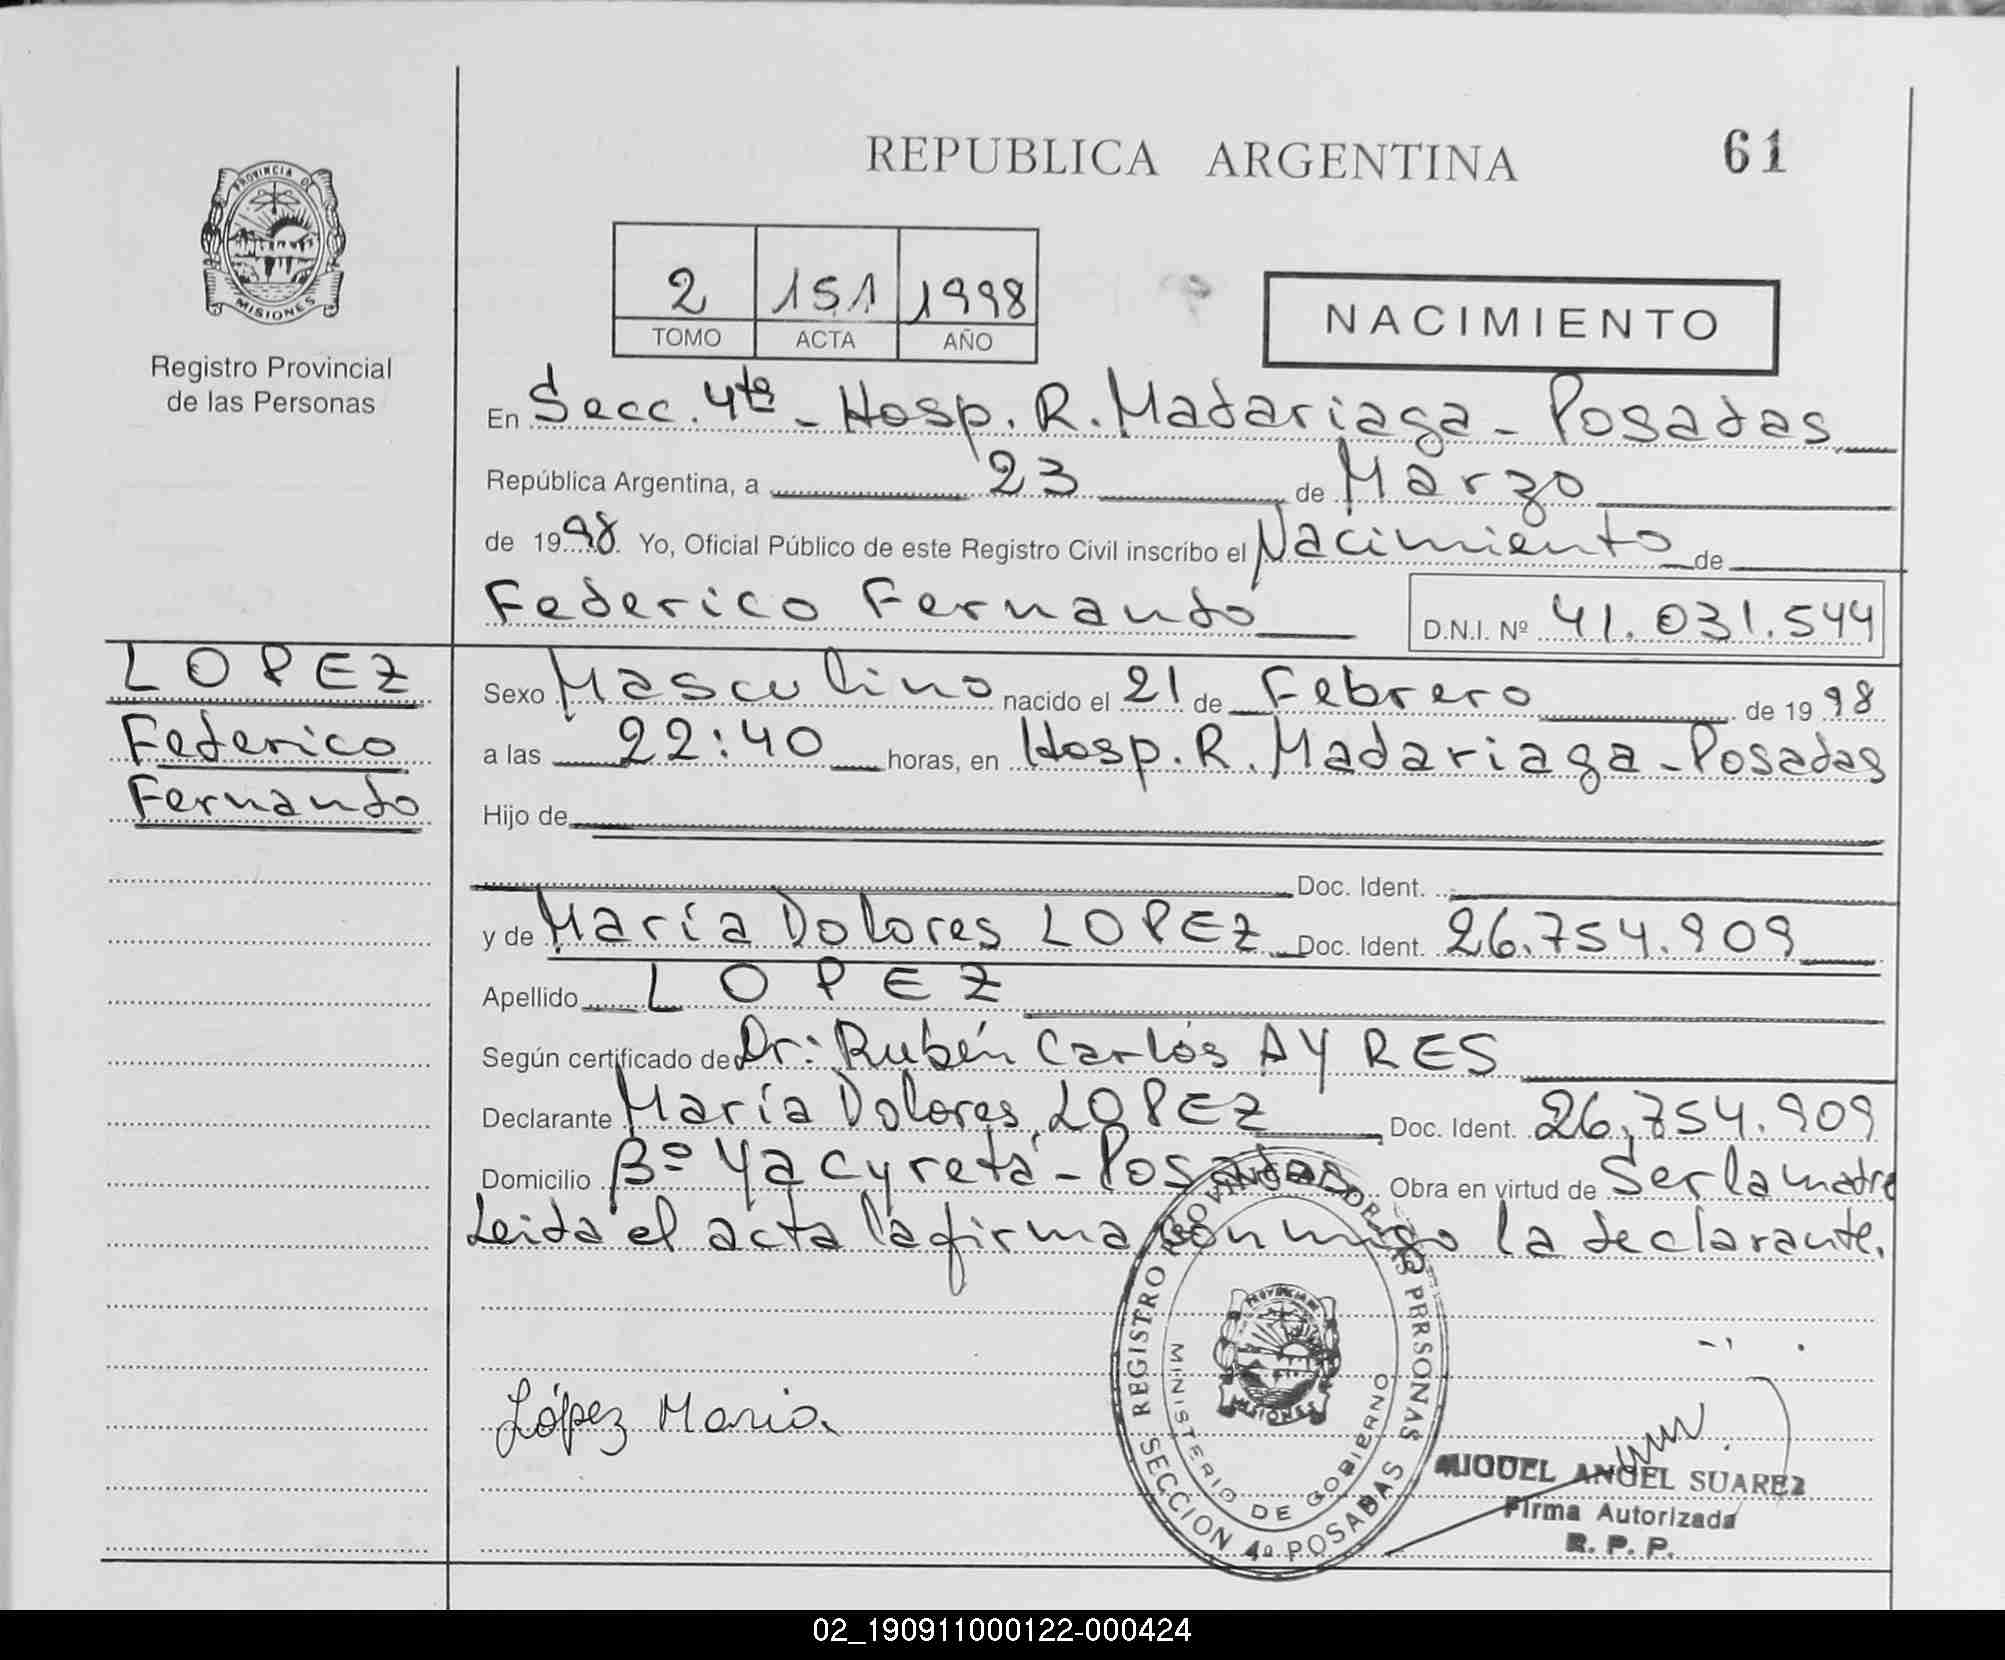 REPUBLICA ARGENTINA 61
PROVINCIA DE
MISIONES
Registro Provincial
de las Personas
2 151 1998
TOMO ACTA AÑO
NACIMIENTO
En Secc. 4ta - Hosp. R. Madariaga - Posadas
República Argentina, a 23 de Marzo
de 1998. Yo, Oficial Público de este Registro Civil inscribo el Nacimiento de
Federico Fernando D.N.I. Nº 41.031.544
LOPEZ
Federico
Fernando
Sexo Masculino nacido el 21 de Febrero de 1998
a las 22:40 horas, en Hosp. R. Madariaga - Posadas
Hijo de
Doc. Ident.
y de María Dolores LOPEZ Doc. Ident. 26.754.909
Apellido LOPEZ
Según certificado de Dr: Rubén Carlos AYRES
Declarante María Dolores LOPEZ Doc. Ident. 26.754.909
Domicilio Bº Yacyreta - Posadas Obra en virtud de Ser la madre
Leida el acta la firma con migo la declarante.
López Maria.
REGISTRO PROVINCIAL DE LAS PERSONAS
MINISTERIO DE GOBIERNO
SECCION 4ª POSADAS
MISIONES
MIGUEL ANGEL SUAREZ
Firma Autorizada
R. P. P.
02_190911000122-000424